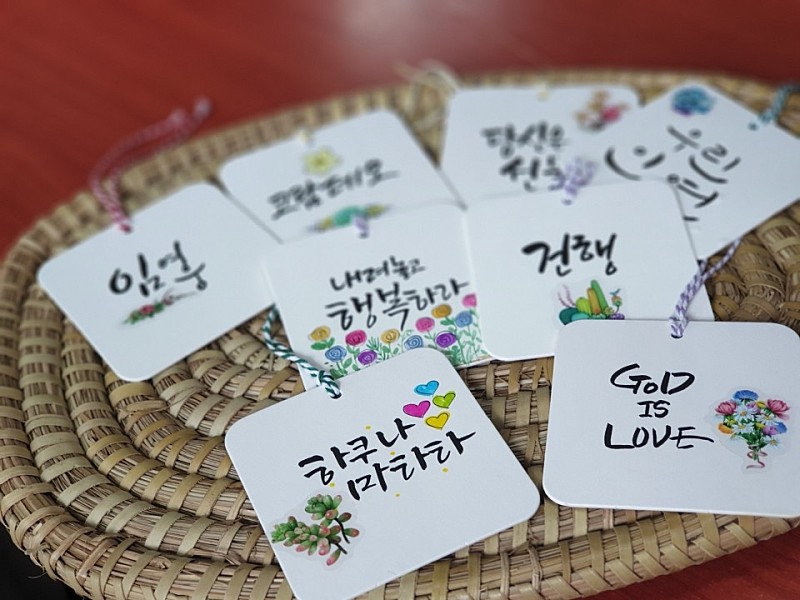 고맙데이
당신은
우리
임영웅
내려놓고
행복하라
건행
하쿠나
마타타
GOD
IS
LOVE